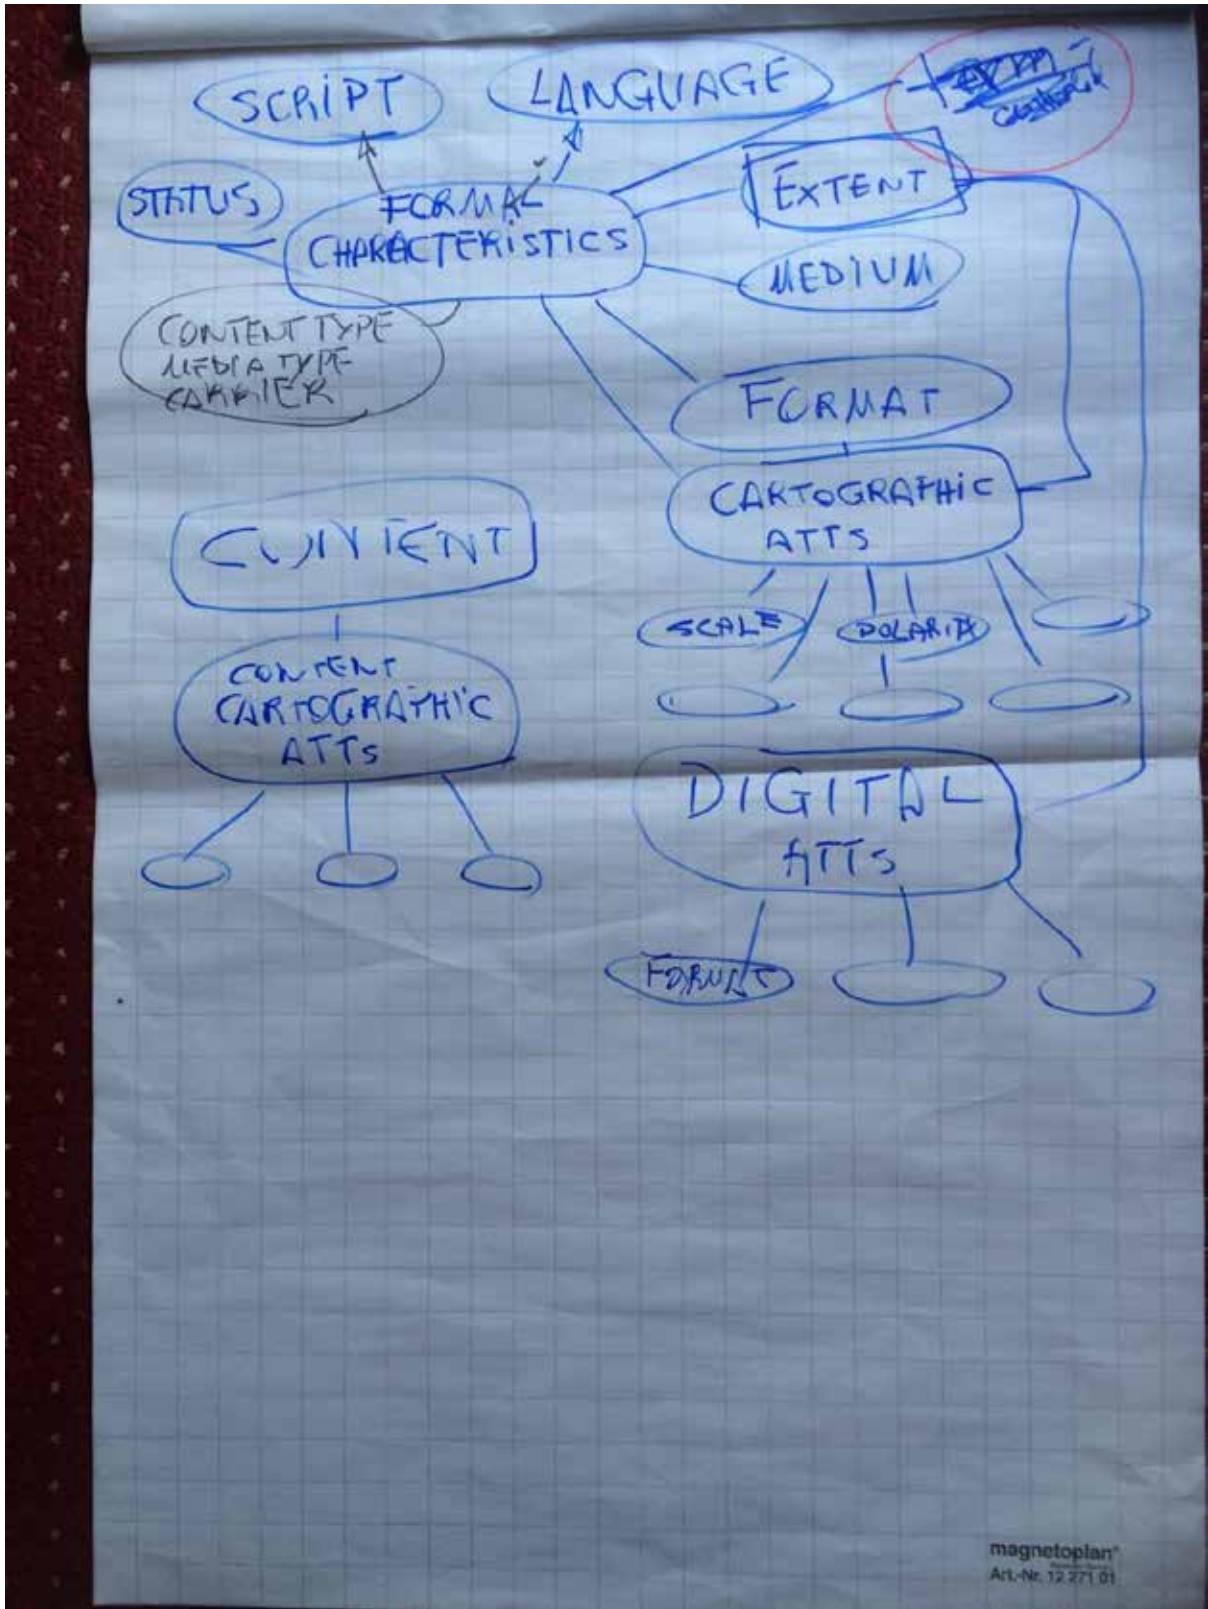 SCRIPT
LANGUAGE
STATUS
FORMAL
CHARACTERISTICS
EXTENT
MEDIUM
CONTENT TYPE
MEDIA TYPE
CARRIER
FORMAT
CARTOGRAPHIC
ATTS
SCALE
POLARITY
CONTENT
CONTENT
CARTOGRAPHIC
ATTS
DIGITAL
ATTS
FORMAT
magnetoplan®
Art.-Nr. 12 271 01